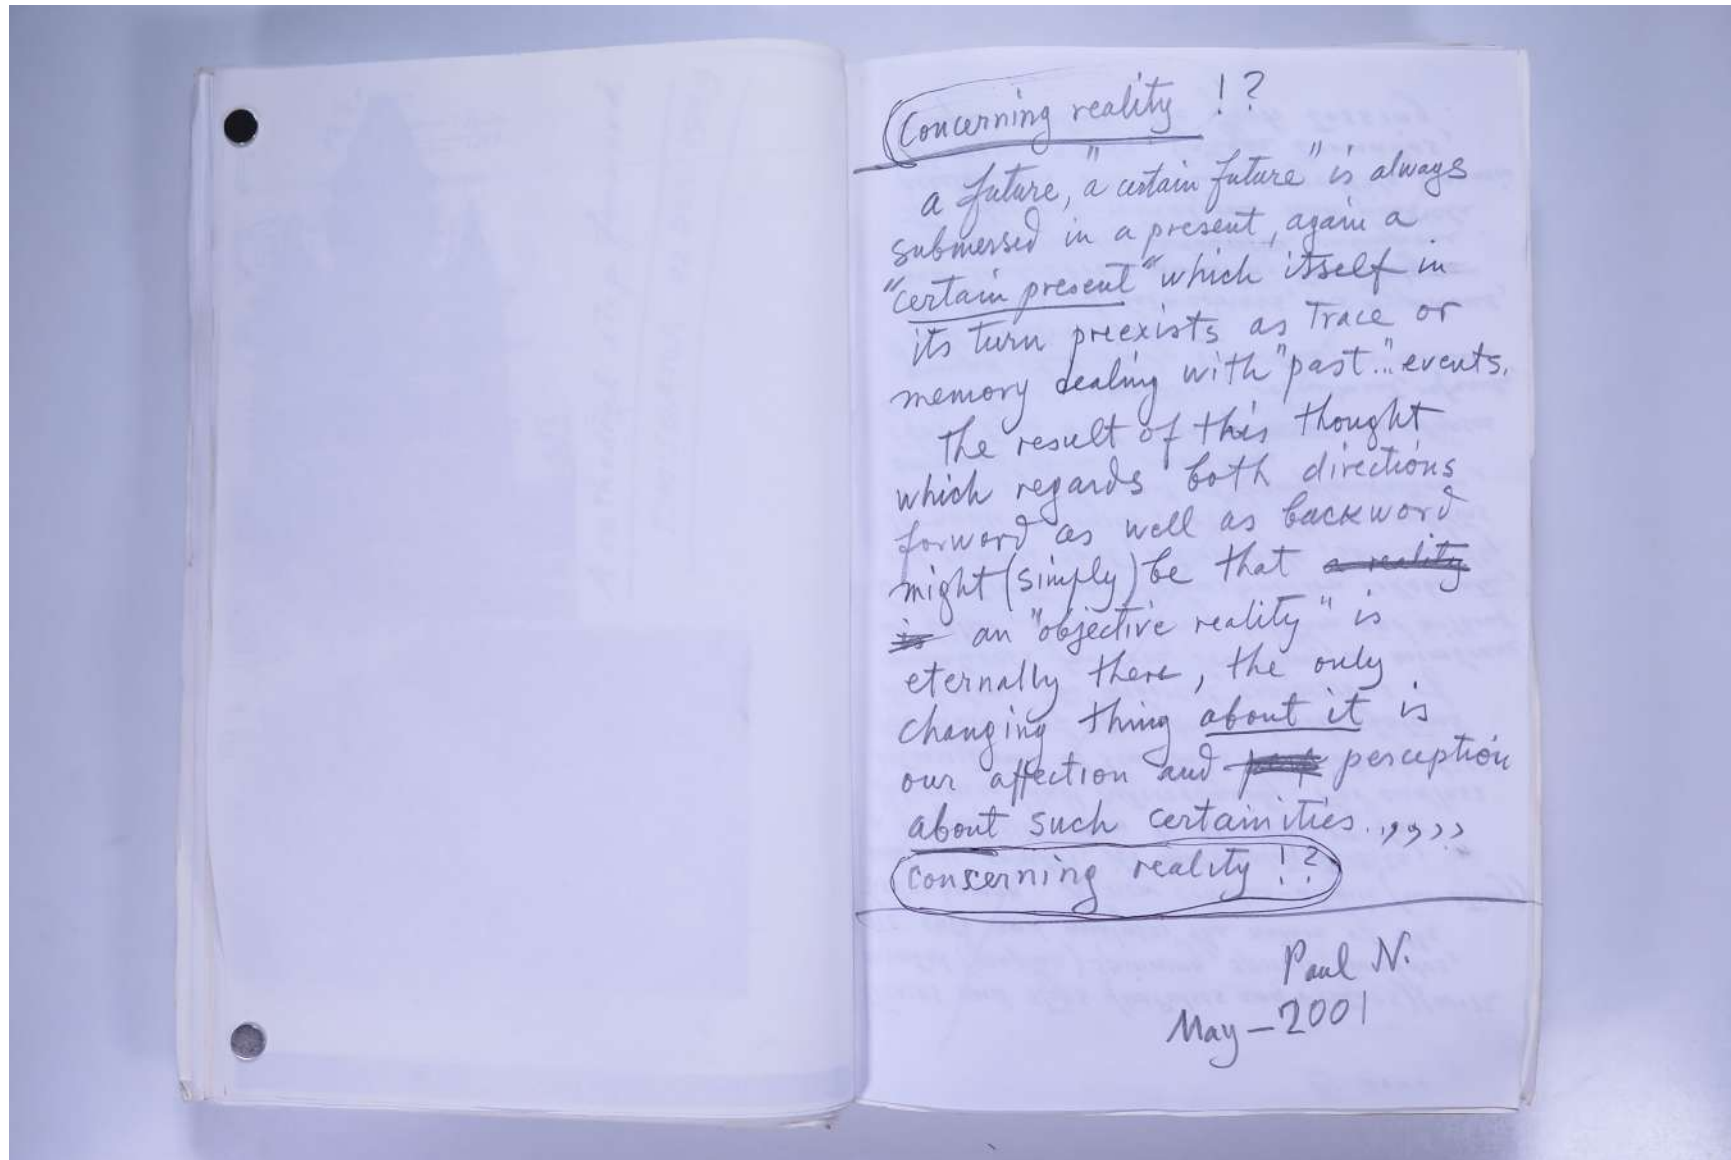 Concerning reality !?
a future, "a certain future" is always
submersed in a present, again a
"certain present" which itself in
its turn preexists as Trace or
memory dealing with "past..." events.
The result of this thought
which regards both directions
forword as well as backword
might (simply) be that a reality
is an "objective reality" is
eternally there, the only
changing thing about it is
our affection and perception
about such certainities.,,,,,
Conserning reality !?
Paul N.
May - 2001